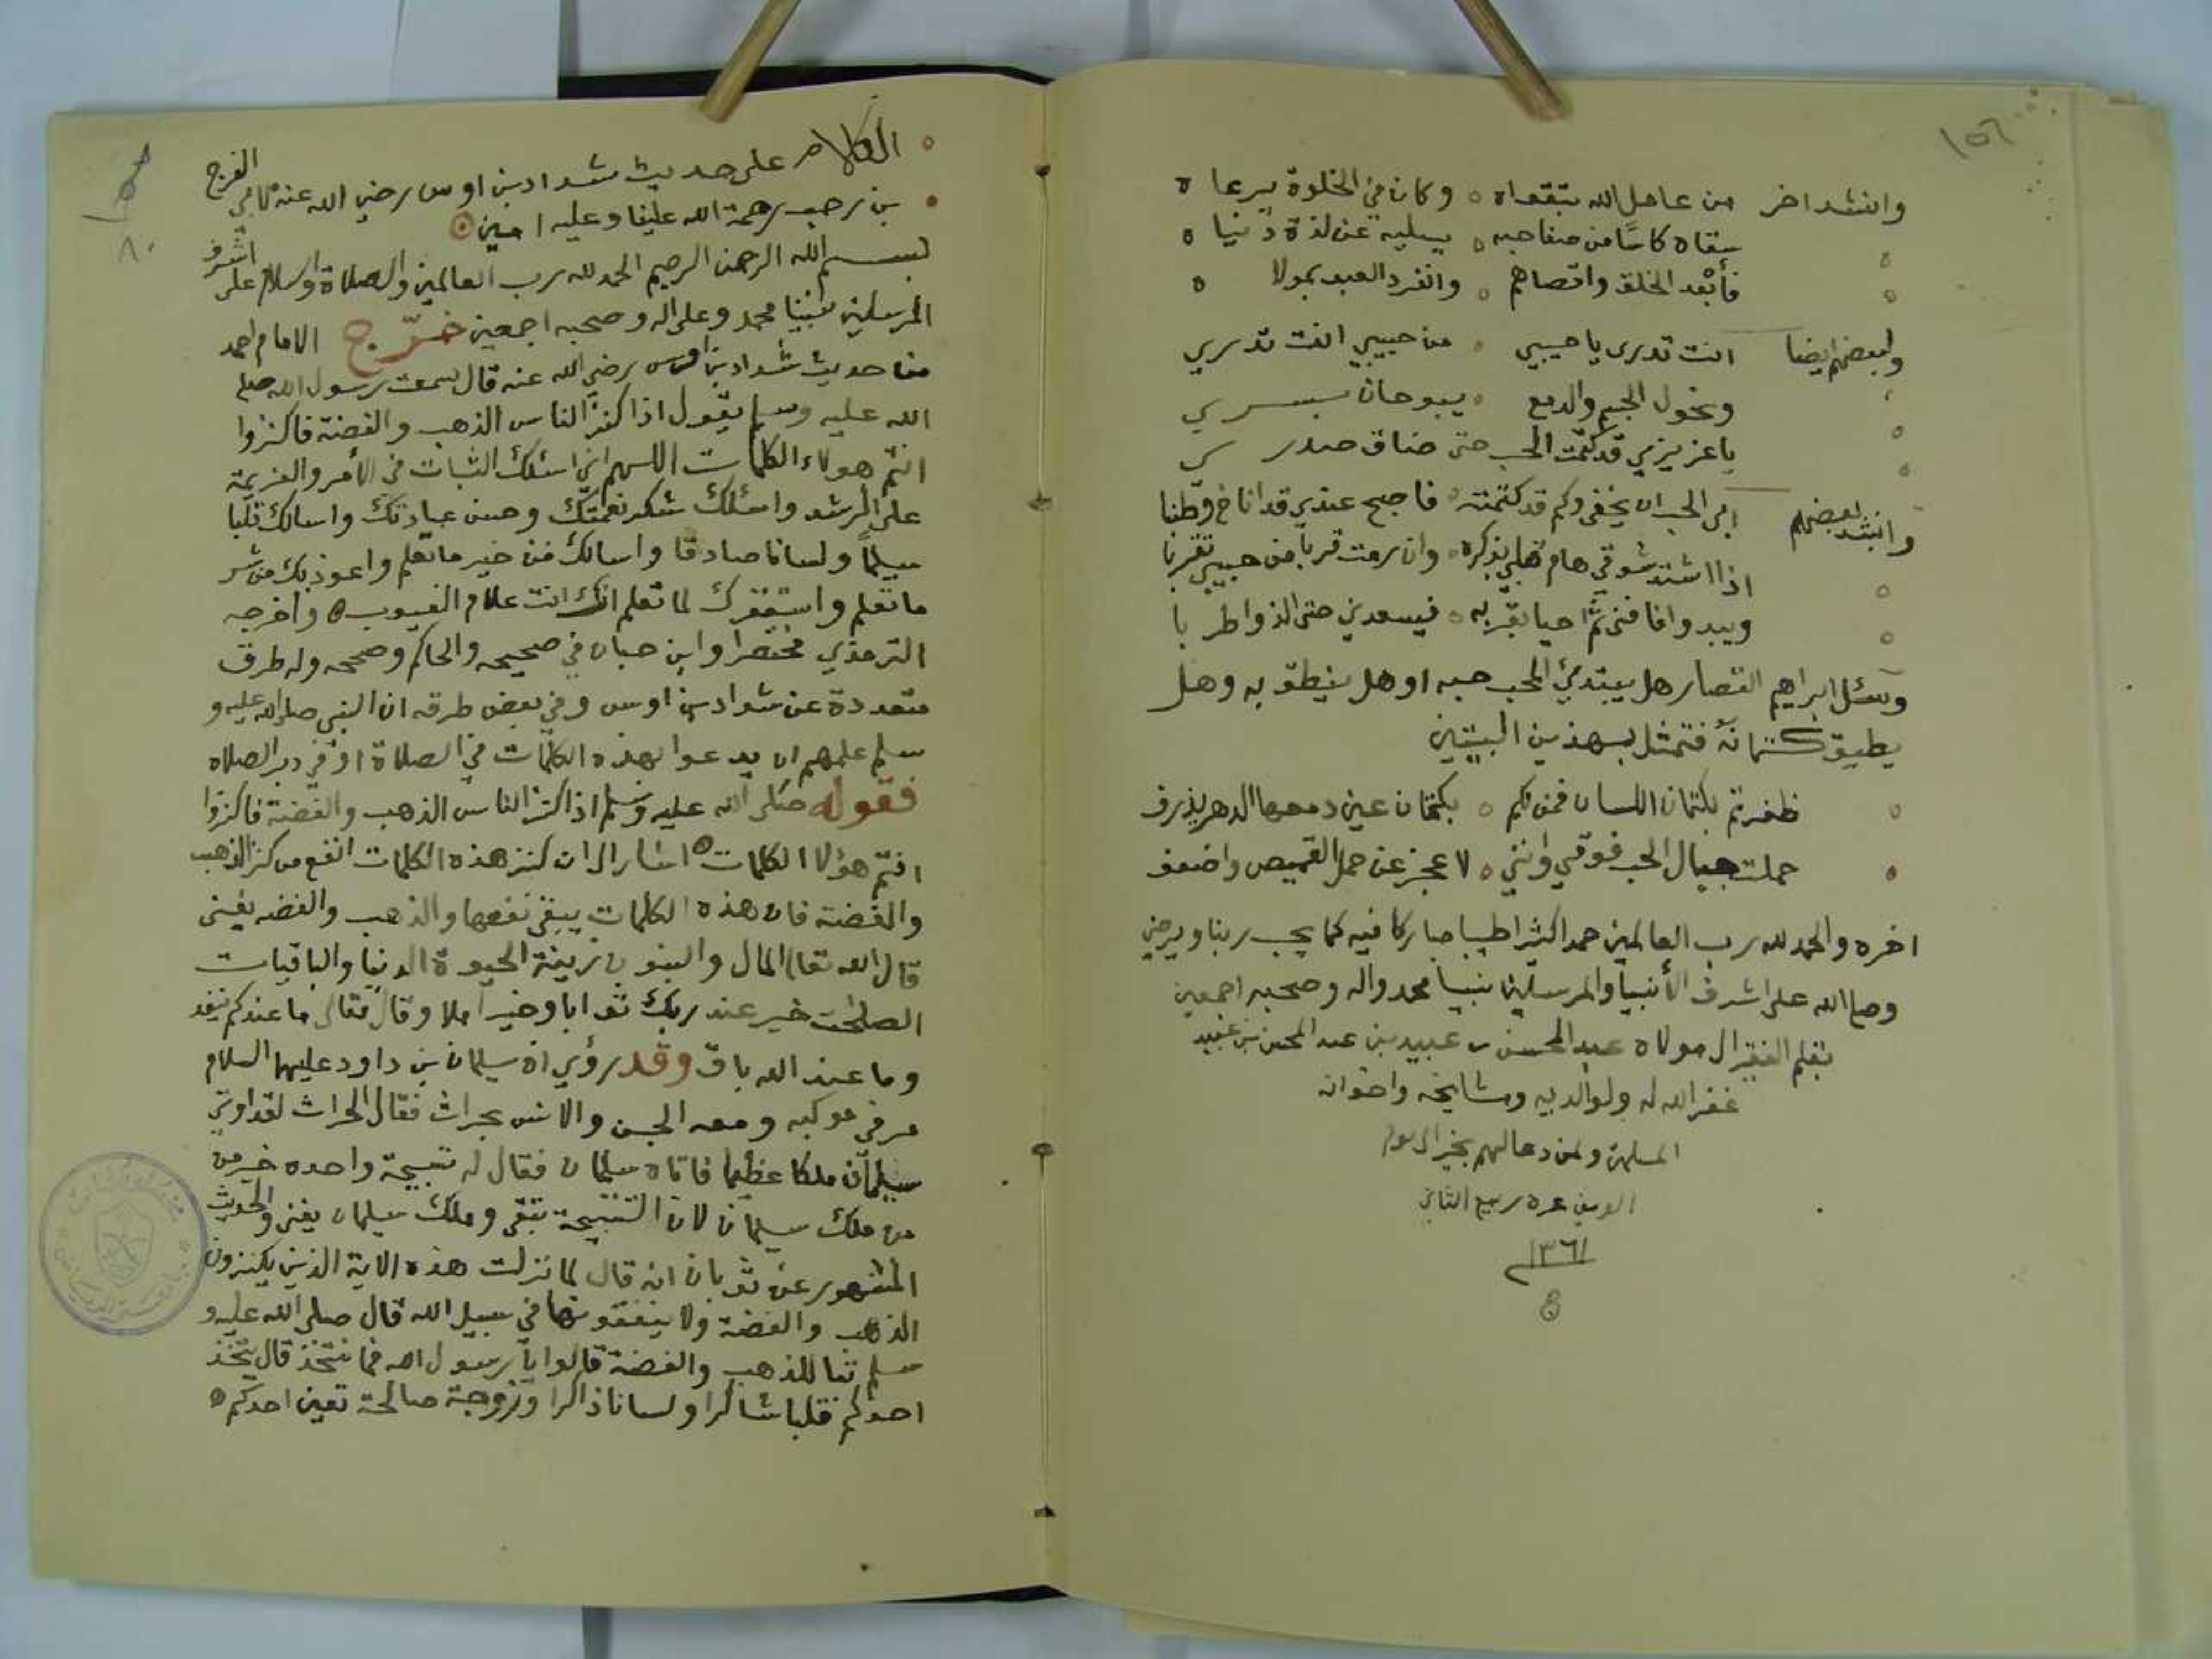 ١٥٦
وانشد اخر من عامل الله بتقواه وكان في الخلوة يرعاه
سقاه كاسا من صفا حبه يسليه عن لذة دنياه
فأبعد الخلق واقصاهم وانفرد العبد بمولاه
ولبعضهم ايضا انت تدرى يا حبيبي من حبيبي انت تدري
ونحول الجسم والدمع يبوحان بسري
يا عزيزي قد كتمت الحب حتى ضاق صدري
وانشد بعضهم ابى الحب ان يخفى وكم قد كتمته فاصبح عندي قد اناخ وطنبا
اذا اشتد شوقي هام قلبي بذكره وان رمت قربا من حبيبي تقربا
ويبدو افافنى ثم احيا بقربه فيسعدني حتى الذ واطربا
وسئل ابراهيم القصار هل يبتدئ المحب حبه او هل ينطق به وهل
يطيق كتمانه فتمثل بهذين البيتين
ظفرتم بكتمان اللسان فمن لكم بكتمان عين دمعها الدهر يذرف
حملت جبال الحب فوقي وانني لاعجز عن حمل القميص واضعف
اخره والحمد لله رب العالمين حمدا كثيرا طيبا مباركا فيه كما يحب ربنا ويرضى
وصلى الله على اشرف الأنبيا والمرسلين نبينا محمد واله وصحبه اجمعين
بقلم الفقير الى مولاه عبد المحسن بن عبيد بن عبد المحسن بن عبيد
غفر الله له ولوالديه ومشايخه واخوانه
المسلمين ولمن دعا لهم بخير الى يوم
الدين غرة ربيع الثاني
١٣٦١
٨٠
الكلام على حديث شداد بن اوس رضي الله عنه لابي الفرج
بن رجب رحمة الله علينا وعليه امين
بسم الله الرحمن الرحيم الحمد لله رب العالمين والصلاة والسلام على اشرف
المرسلين نبينا محمد وعلى اله وصحبه اجمعين خرّج الامام احمد
من حديث شداد بن اوس رضي الله عنه قال سمعت رسول الله صلى
الله عليه وسلم يقول اذا كنز الناس الذهب والفضة فاكنزوا
انتم هولاء الكلمات اللهم اني اسئلك الثبات في الأمر والعزيمة
على الرشد واسئلك شكر نعمتك وحسن عبادتك واسالك قلبا
سليماً ولسانا صادقا واسالك من خير ما تعلم واعوذ بك من شر
ما تعلم واستغفرك لما تعلم انك انت علام الغيوب واخرجه
الترمذي مختصرا وابن حبان في صحيحه والحاكم وصححه وله طرق
متعددة عن شداد بن اوس وفي بعض طرقه ان النبي صلى الله عليه و
سلم علمهم ان يدعوا بهذه الكلمات في الصلاة او في دبر الصلاه
فقوله صلى الله عليه وسلم اذا كنز الناس الذهب والفضة فاكنزوا
انتم هؤلا الكلمات اشار الى ان كنز هذه الكلمات انفع من كنز الذهب
والفضة فان هذه الكلمات يبقى نفعها والذهب والفضه يفنى
قال الله تعالى المال والبنون زينة الحيوة الدنيا والباقيات
الصلحت خير عند ربك ثوابا وخير املا وقال تعالى ما عندكم ينفد
وما عند الله باق وقد رؤي ان سليمان بن داود عليهما السلام
مر في موكبه ومعه الجن والانس بحراث فقال الحراث لقد اوتي
سليمان ملكا عظيما فاتاه سليمان فقال له تسبيحة واحده خير من
من ملك سليمان لان التسبيحة تبقى وملك سليمان يفنى والحديث
المشهور عن ثوبان انه قال لما نزلت هذه الاية الذين يكنزون
الذهب والفضة ولا ينفقونها في سبيل الله قال صلى الله عليه و
سلم تبا للذهب والفضة قالوا يا رسول الله فما نتخذ قال يتخذ
احدكم قلبا شاكرا ولسانا ذاكرا وزوجة صالحة تعين احدكم